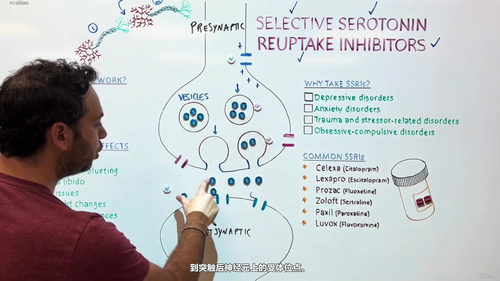 SELECTIVE SEROTONIN
REUPTAKE INHIBITORS
PRESYNAPTIC
WORK?
VESICLES
WHY TAKE SSRIs?
Depressive disorders
Anxiety disorders
Trauma and stressor-related disorders
Obsessive-compulsive disorders
COMMON SSRIs
Celexa (Citalopram)
Lexapro (Escitalopram)
Prozac (Fluoxetine)
Zoloft (Sertraline)
Paxil (Paroxetine)
Luvox (Fluvoxamine)
到突触后神经元上的受体位点.